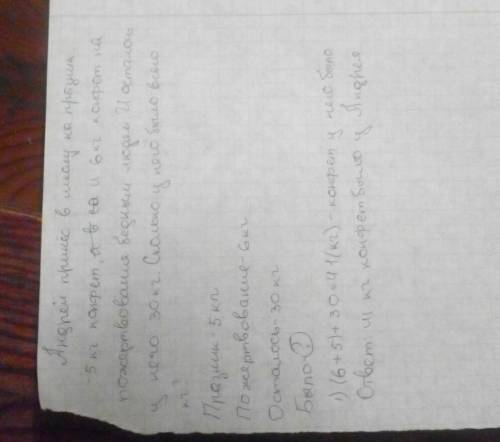 Андрей принёс в школу на праздник
-5 кг конфет, а в и 6 кг конфет на
пожертвования бедным людям И осталось
у него 30 кг. Сколько у него было всего
кг?
Праздник - 5 кг
Пожертвование - 6 кг
Осталось - 30 кг
Было - ?
1) (6+5)+30=41(кг) - конфет у него было
Ответ: 41 кг конфет было у Андрея